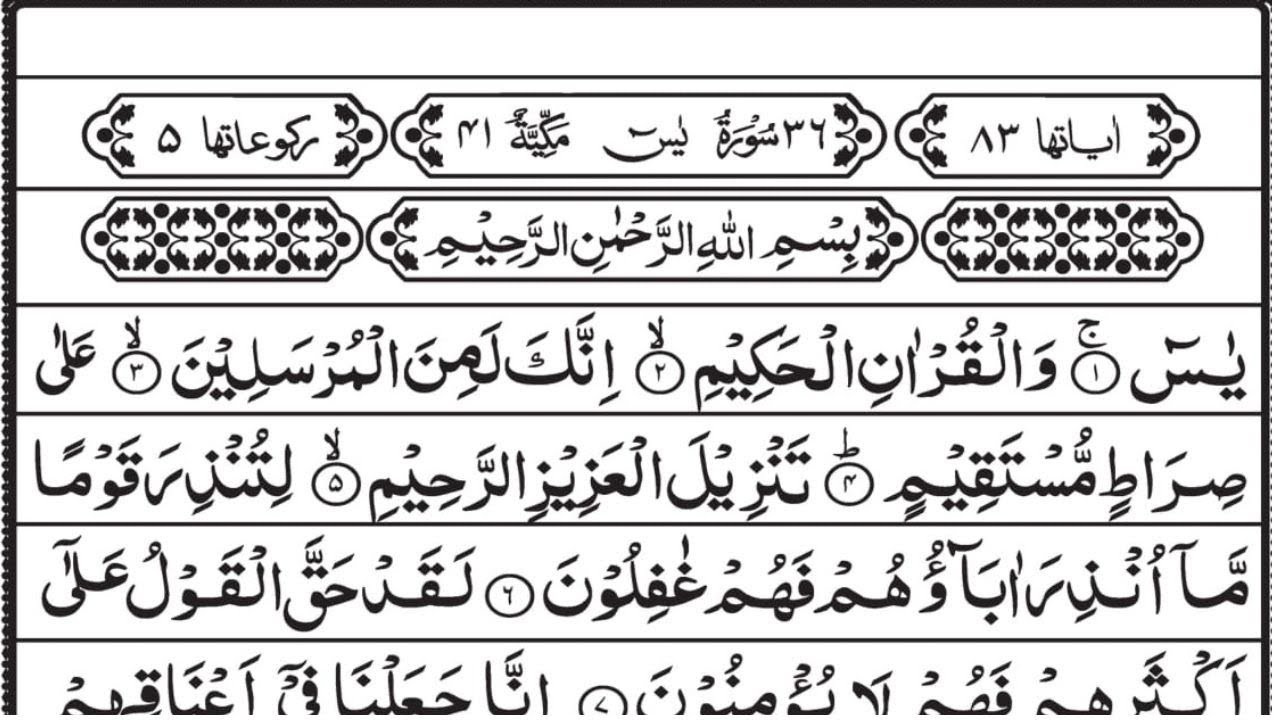 اٰیاتها ٨٣ ٣٦ سُوْرَةُ يٰسٓ مَكِّيَّةٌ ٤١ رکوعاتها ۵
بِسْمِ اللّٰهِ الرَّحْمٰنِ الرَّحِيْمِ
يٰسٓ ۚ﴿۱﴾ وَالْقُرْاٰنِ الْحَكِيْمِ ۙ﴿۲﴾ اِنَّكَ لَمِنَ الْمُرْسَلِيْنَ ۙ﴿۳﴾ عَلٰى
صِرَاطٍ مُّسْتَقِيْمٍ ؕ﴿۴﴾ تَنْزِيْلَ الْعَزِيْزِ الرَّحِيْمِ ۙ﴿۵﴾ لِتُنْذِرَ قَوْمًا
مَّاۤ اُنْذِرَ اٰبَآؤُهُمْ فَهُمْ غٰفِلُوْنَ ﴿۶﴾ لَقَدْ حَقَّ الْقَوْلُ عَلٰۤى
اَكْثَرِهِمْ فَهُمْ لَا يُؤْمِنُوْنَ ﴿۷﴾ اِنَّا جَعَلْنَا فِيْۤ اَعْنَاقِهِمْ